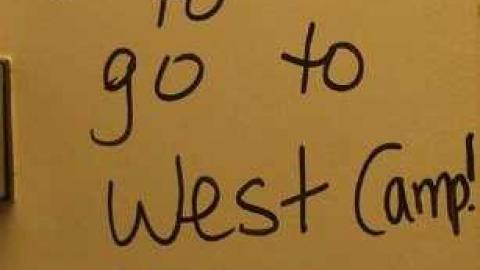 to
go to
West Camp!